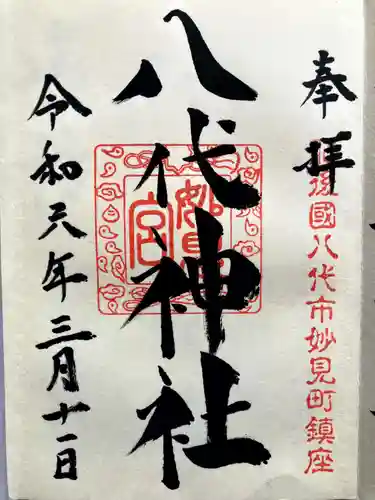 奉拝
後國八代市妙見町鎮座
八代神社
妙見宮
令和六年三月十一日